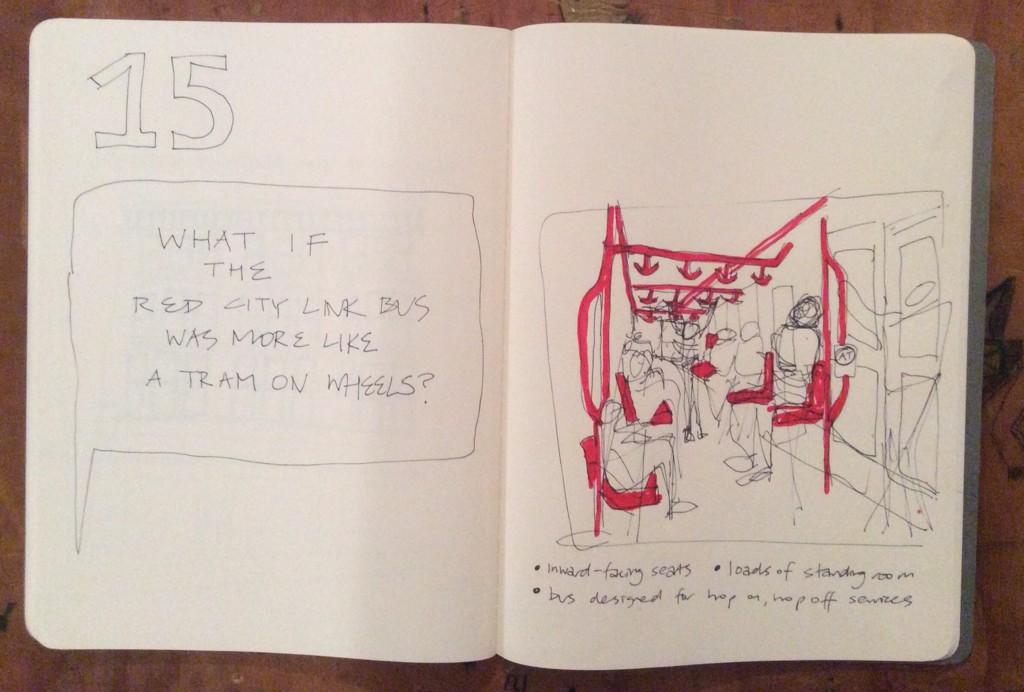 15
WHAT IF
THE
RED CITY LINK BUS
WAS MORE LIKE
A TRAM ON WHEELS?
• inward-facing seats • loads of standing room
• bus designed for hop on, hop off services